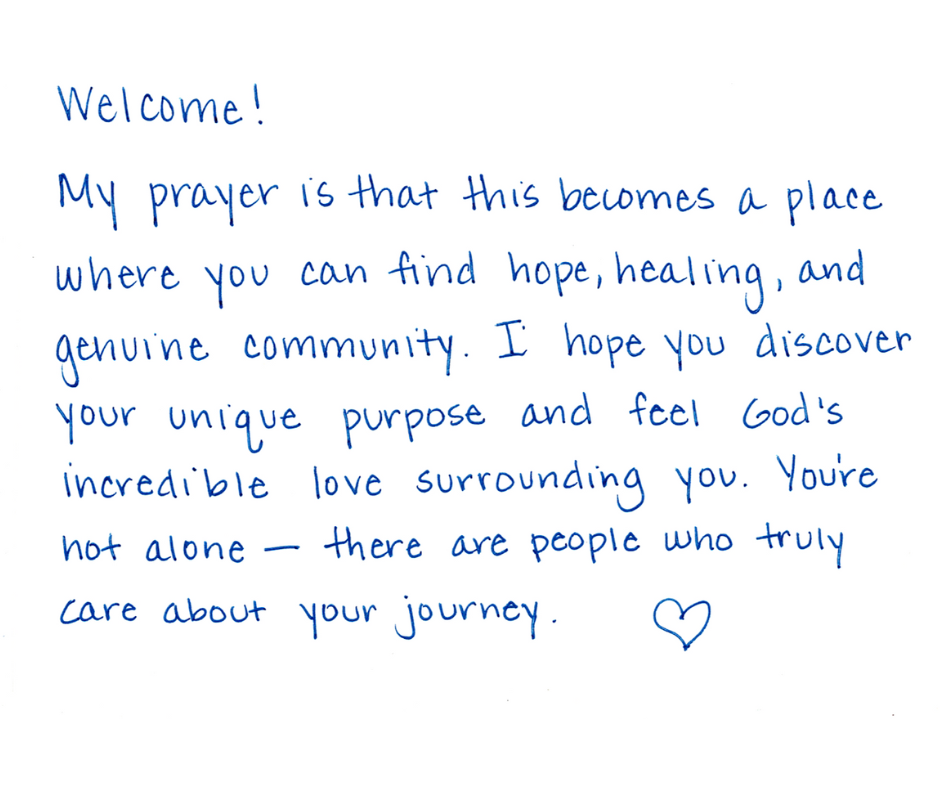 Welcome!
My prayer is that this becomes a place
where you can find hope, healing, and
genuine community. I hope you discover
your unique purpose and feel God's
incredible love surrounding you. You're
not alone — there are people who truly
care about your journey. ♡